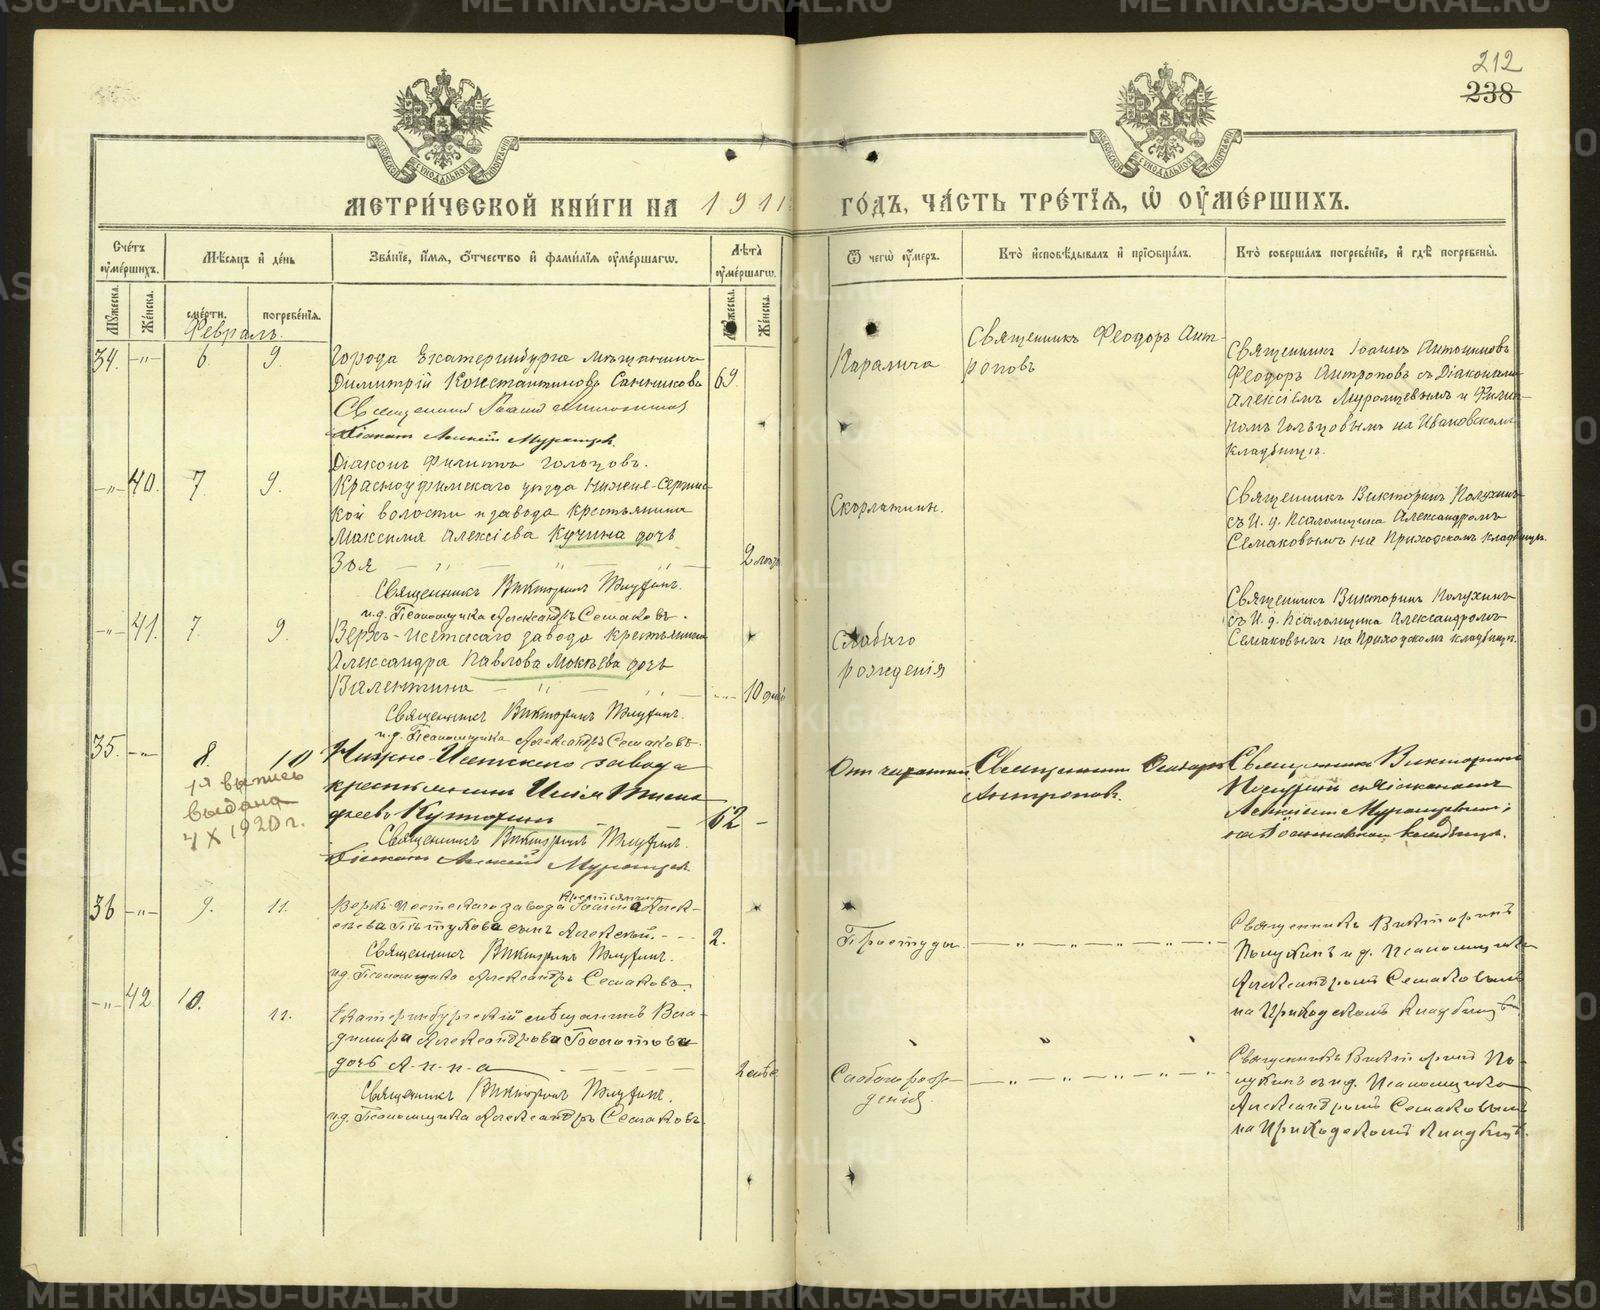 212
238
МОСКОВСКОЙ СѴНОДАЛЬНОЙ ТИПОГРАФІИ
МОСКОВСКОЙ СѴНОДАЛЬНОЙ ТИПОГРАФІИ
МЕТРИ́ЧЕСКОЙ КНИ́ГИ НА 1911
ГО́ДЪ, ЧА́СТЬ ТРЕ́ТІЯ, Ѽ ОУ҆МЕ́РШИХЪ.
Сче́тъ оу҆ме́ршихъ.
Мѣ́сяцъ и҆ де́нь
Зва́ніе, и҆́мя, о҆́тчество и҆ фами́лія оу҆ме́ршагѡ.
Лѣ́та оу҆ме́ршагѡ.
Ѿ чегѡ̀ оу҆́меръ.
Кто̀ и҆сповѣ́дывалъ и҆ пріѡбща́лъ.
Кто̀ соверша́лъ погребе́ніе, и҆ гдѣ̀ погребены̀.
Мꙋ́жеска.
Же́нска.
сме́рти.
погребе́нія.
Мꙋ́жеска.
Же́нска.
Февраль.
34. —„— 6 9.
Города Екатеринбурга мѣщанинъ
Димитрій Константиновъ Санниковъ 69.
Священникъ Іоаннъ
Діаконъ Алексій Муромцевъ.
Діаконъ Филиппъ Гольцовъ.
Паралича
Священникъ Феодоръ Ант-
роповъ
Священникъ Іоаннъ
Феодоръ Антроповъ съ Діаконами
Алексіемъ Муромцевымъ и Филип-
помъ Гольцовымъ на Ивановскомъ
кладбищѣ.
—„— 40. 7. 9.
Красноуфимскаго уѣзда Нижне-Сергин-
кой волости и завода крестьянина
Максима Алексіева Кучина дочь
Зоя — „ — „ — „ 2
Священникъ Викторинъ Полухинъ.
и.д. Псаломщика Александръ Семаковъ.
Скарлатины.
Священникъ Викторинъ Полухинъ
съ И. д. Псаломщика Александромъ
Семаковымъ на Приходскомъ кладбищѣ.
—„— 41. 7. 9.
Верхъ-Исетскаго завода крестьянина
Александра Павлова Мокѣева дочь
Валентина — „ — „ — —„— 10 дней
Священникъ Викторинъ Полухинъ.
и.д. Псаломщика Александръ Семаковъ.
Слабаго
рожденія
Священникъ Викторинъ Полухинъ
съ И. д. Псаломщика Александромъ
Семаковымъ на Приходскомъ кладбищѣ.
35. —„— 8. 10
1я выпись
выдана
4 X 1920 г.
Нижне-Исетскаго завода
крестьянинъ Илія
62 —
Священникъ Викторинъ Полухинъ.
Діаконъ Алексій Муромцевъ.
Отъ
Священникъ Феодоръ
Антроповъ.
Священникъ Викторинъ
Полухинъ съ Діакономъ
Алексіемъ Муромцевымъ,
на Іоанновскомъ кладбищѣ.
36 —„— 9. 11.
Верхъ-Исетскаго завода крестьянина Іоанна Алек-
сѣева Пѣтухова сынъ Алексѣй. - - - 2.
Священникъ Викторинъ Полухинъ.
и.д. Псаломщика Александръ Семаковъ.
Простуды — „ — „ — „ — „ —
Священникъ Викторинъ
Полухинъ и.д. Псаломщика
Александромъ Семаковымъ
на Приходскомъ Кладбищѣ.
—„— 42. 10. 11.
Екатеринбургскій мѣщанинъ Вла-
димира Александрова
дочь А-н-н-а 2
Священникъ Викторинъ Полухинъ.
и.д. Псаломщика Александръ Семаковъ.
Слабаго рож-
денія. — „ — „ — „ — „ —
Священникъ Викторинъ По-
лухинъ съ и.д. Псаломщика
Александромъ Семаковымъ
на Приходскомъ Кладбищѣ.
METRIKI.GASO-URAL.RU